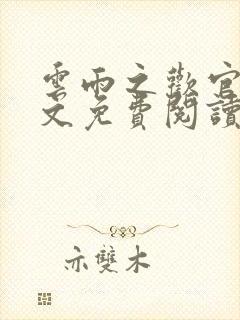 雲雨之歡官
文免費閱讀
亦雙木